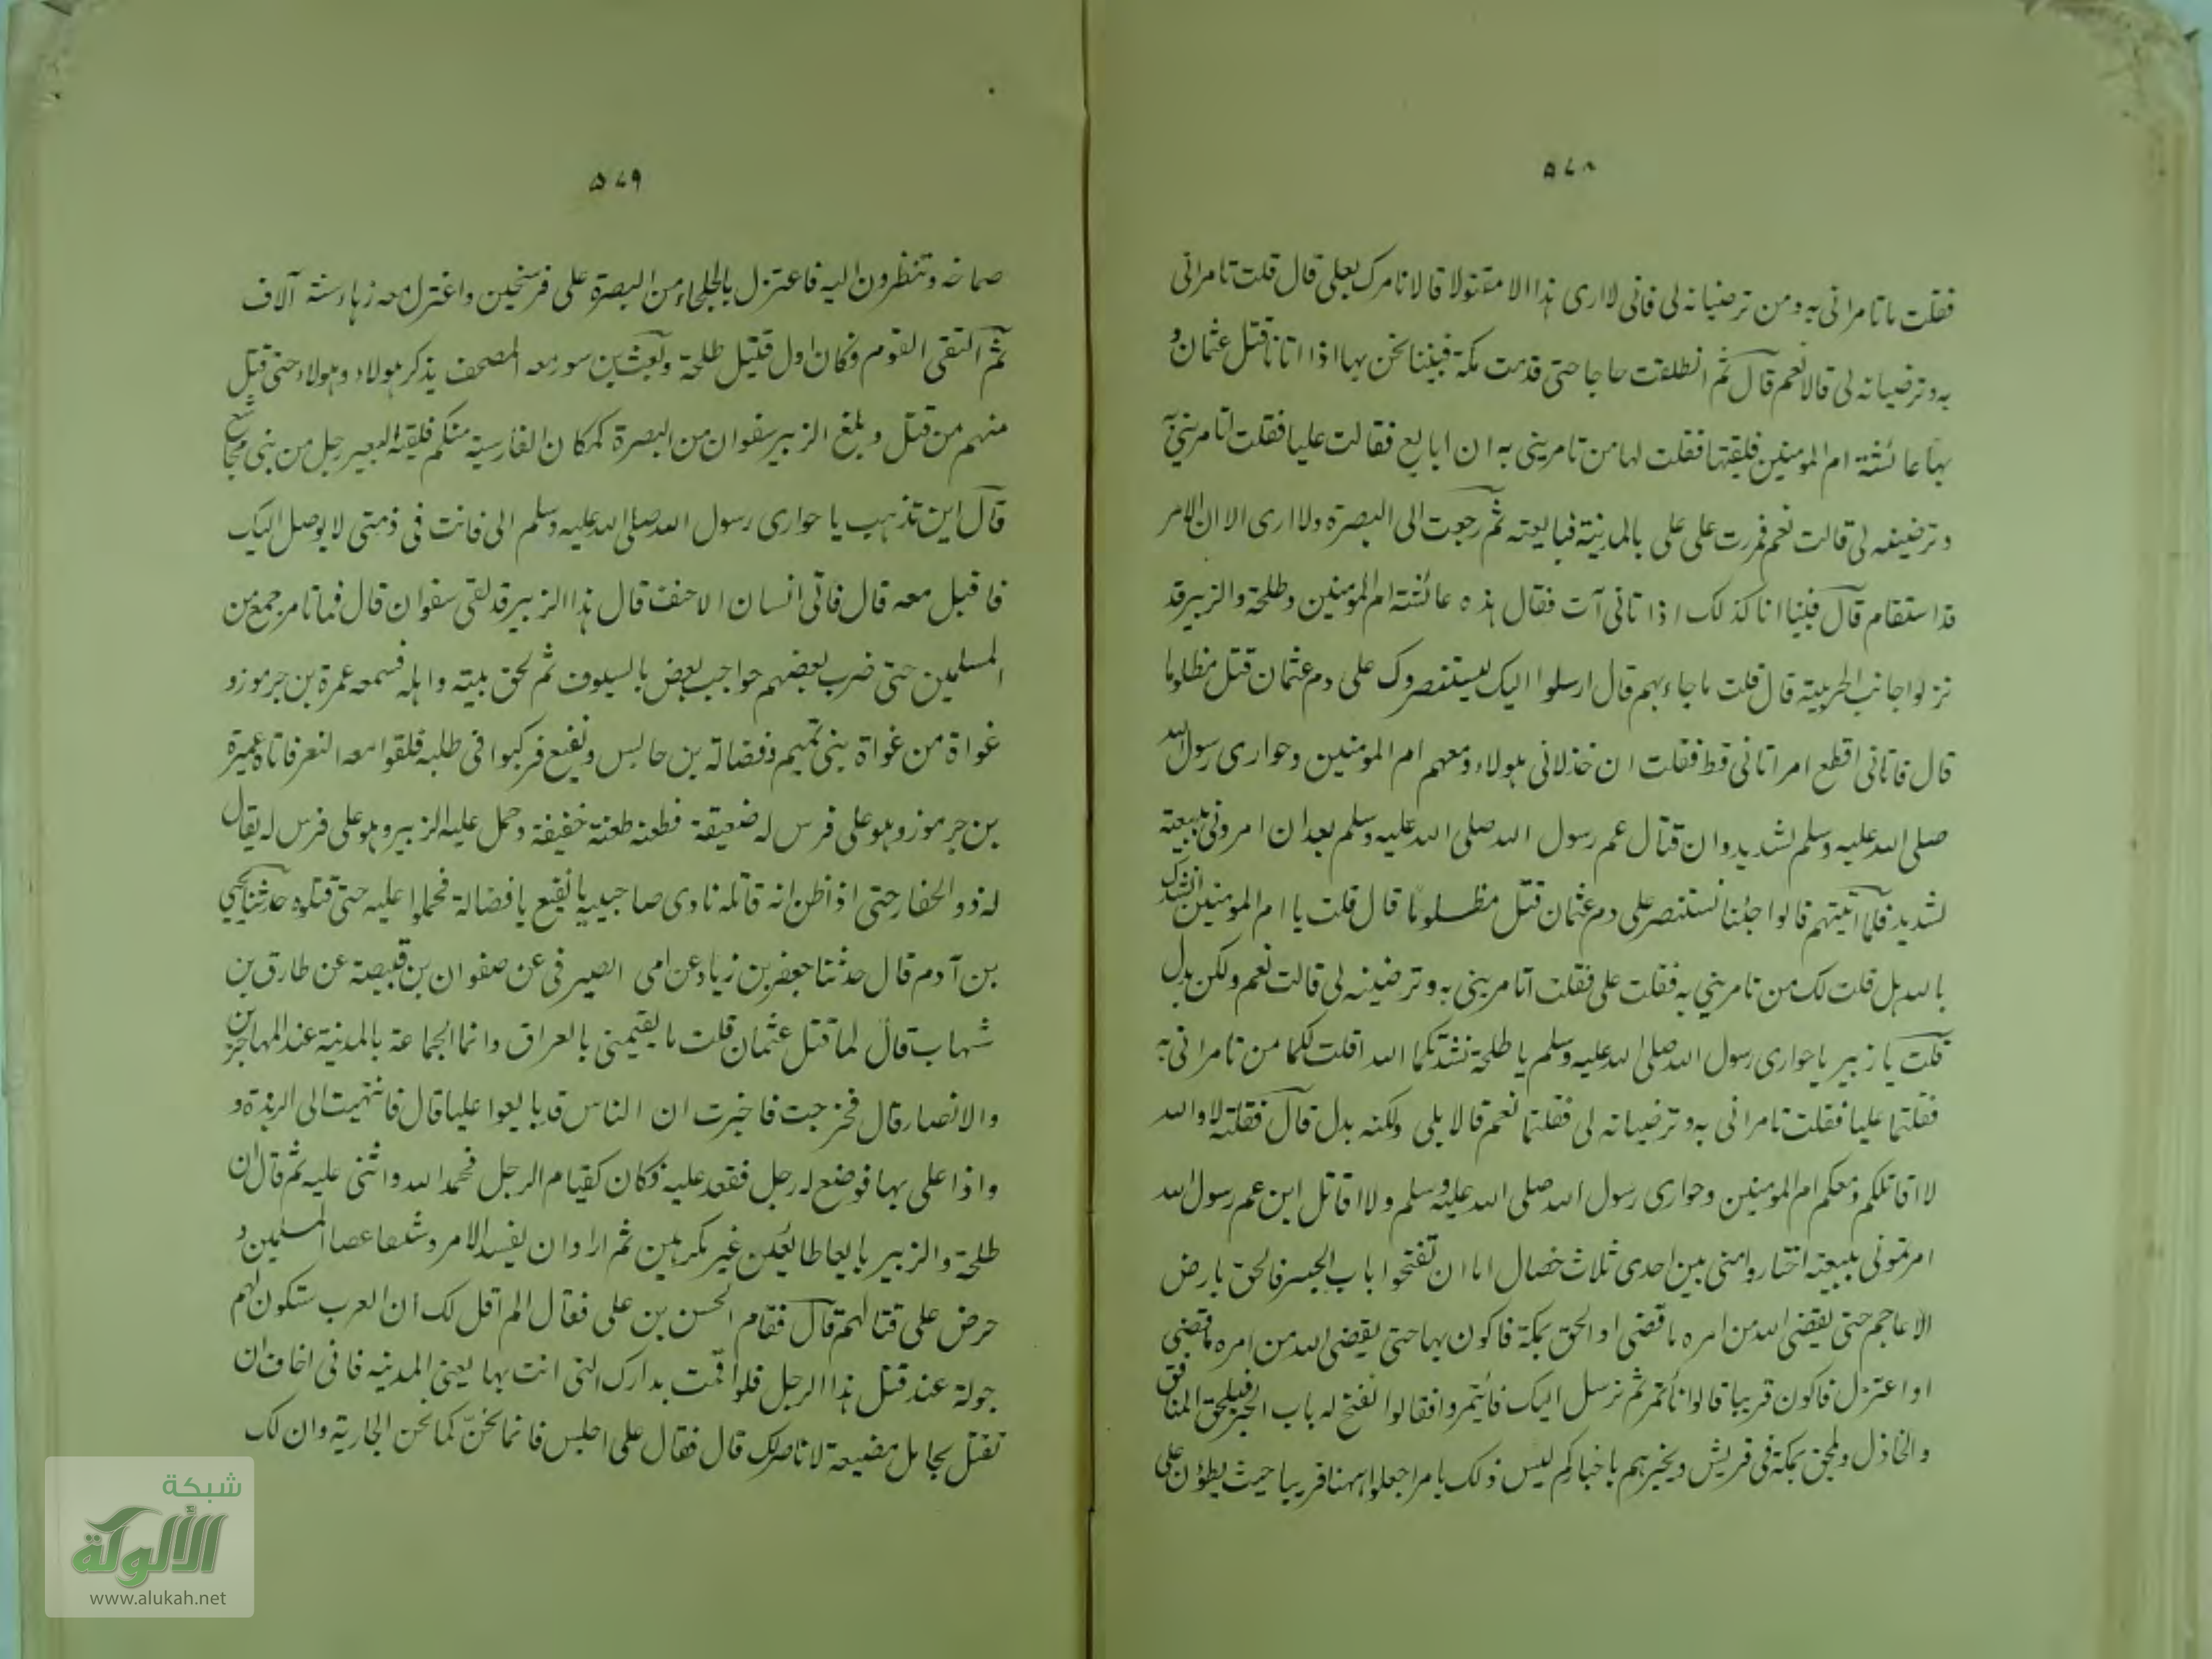 ٥٧٨
فقلت ما تامرانى به ومن ترضيانه لى فانى لا ارى هذا الا مقتولا قالا نامرك بعلى قال قلت تامرانى
به وترضيانه لى قالا نعم قال ثم انطلقت حاجا حتى قدمت مكة فبينا نحن بها اذا اتانا قتل عثمان و
بها عائشة ام المومنين فلقيتها فقلت لها من تامرينى به ان ابايع فقالت عليا فقلت اتامرينى به
وترضينه لى قالت نعم فمررت على على بالمدينة فبايعته ثم رجعت الى البصرة ولا ارى الا ان الامر
قد استقام قال فبينا انا كذلك اذا تانى آت فقال هذه عائشة ام المومنين وطلحة والزبير قد
نزلوا جانب الخريبة قال قلت ما جاء بهم قال ارسلوا اليك يستنصروك على دم عثمان قتل مظلوما
قال فاتانى اقطع امر اتانى قط فقلت ان خذلانى هولاء ومعهم ام المومنين وحوارى رسول الله
صلى الله عليه وسلم لشديد وان قتال عم رسول الله صلى الله عليه وسلم بعد ان امرونى ببيعته
لشديد فلما آتيتهم قالوا جئنا نستنصر على دم عثمان قتل مظلوما قال قلت يا ام المومنين انشدك
بالله هل قلت لك من تامريني به فقلت على فقلت اتامرينى به وترضينه لى قالت نعم ولكن بدل
قلت يا زبير يا حوارى رسول الله صلى الله عليه وسلم يا طلحة نشدتكما الله اقلت لكما من تامرانى به
فقلتما عليا فقلت تامرانى به وترضيانه لى فقلتما نعم قالا بلى ولكنه بدل قال فقلت لا والله
لا اقاتلكم ومعكم ام المومنين وحوارى رسول الله صلى الله عليه وسلم ولا اقاتل ابن عم رسول الله
امرتمونى ببيعته اختاروا منى بين احدى ثلاث خصال اما ان تفتحوا باب الجسر فالحق بارض
الاعاجم حتى يقضى الله من امره ما قضى او الحق بمكة فاكون بها حتى يقضى الله من امره ما قضى
او اعتزل فاكون قريبا قالوا نأتمر ثم نرسل اليك فائتمروا فقالوا نفتح له باب الجسر فيلحق المنافق
والخاذل ويلحق بمكة فى قريش ويخبرهم باخباركم ليس ذلك بامر اجعلوا ههنا قريبا حيث يطؤن على
٥٧٩
صماخه وتنظرون اليه فاعتزل بالجلحاء من البصرة على فرسخين واعتزل معه زهاء ستة آلاف
ثم التقى القوم فكان اول قتيل طلحة وكعب بن سور معه المصحف يذكر هولاء وهولاء حتى قتل
منهم من قتل وبلغ الزبير سفوان من البصرة كمكان القادسية منكم فلقيه البعير رجل من بنى مجاشع
قال اين تذهب يا حوارى رسول الله صلى الله عليه وسلم الى فانت فى ذمتى لا يوصل اليك
فاقبل معه قال فاتى انسان الاحنف قال هذا الزبير قد لقى سفوان قال فما تامر جمع من
المسلمين حتى ضرب بعضهم حواجب بعض بالسيوف ثم لحق ببيته واهله فسمعه عمرة بن جرموز و
غواة من غواة بنى تميم وفضالة بن حابس ونفيع فركبوا فى طلبه فلقوا معه النعر فاتاه عميرة
بن جرموز وهو على فرس له ضعيفة فطعنه طعنة خفيفة وحمل عليه الزبير وهو على فرس له يقال
له ذو الخفار حتى اذا ظن انه قاتله نادى صاحبيه يا نفيع يا فضالة فحملوا عليه حتى قتلوه حدثنا يحيى
بن آدم قال حدثنا جعفر بن زياد عن امى الصيرفى عن صفوان بن قبيصة عن طارق بن
شهاب قال لما قتل عثمان قلت ما يقيمنى بالعراق وانما الجماعة بالمدينة عند المهاجرين
والانصار قال فخرجت فاخبرت ان الناس قد بايعوا عليا قال فانتهيت الى الربذة و
واذا على بها فوضع له رحل فقعد عليه فكان كقيام الرجل فحمد الله واثنى عليه ثم قال ان
طلحة والزبير بايعا طايعين غير مكرهين ثم ارادا ان يفسدا الامر وشقا عصا المسلمين و
حرض على قتالهم قال فقام الحسن بن على فقال الم اقل لك ان العرب ستكون لهم
جولة عند قتل هذا الرجل فلو اقمت بدارك التى انت بها يعنى المدينه فانى اخاف ان
تقتل بحال مضيعة لا ناصر لك قال فقال على اجلس فانما تخن كما تخن الجارية وان لك
شبكة
الألوكة
www.alukah.net